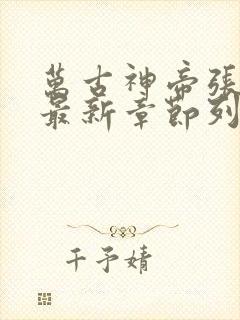 萬古神帝張
最新章節列
千予婧